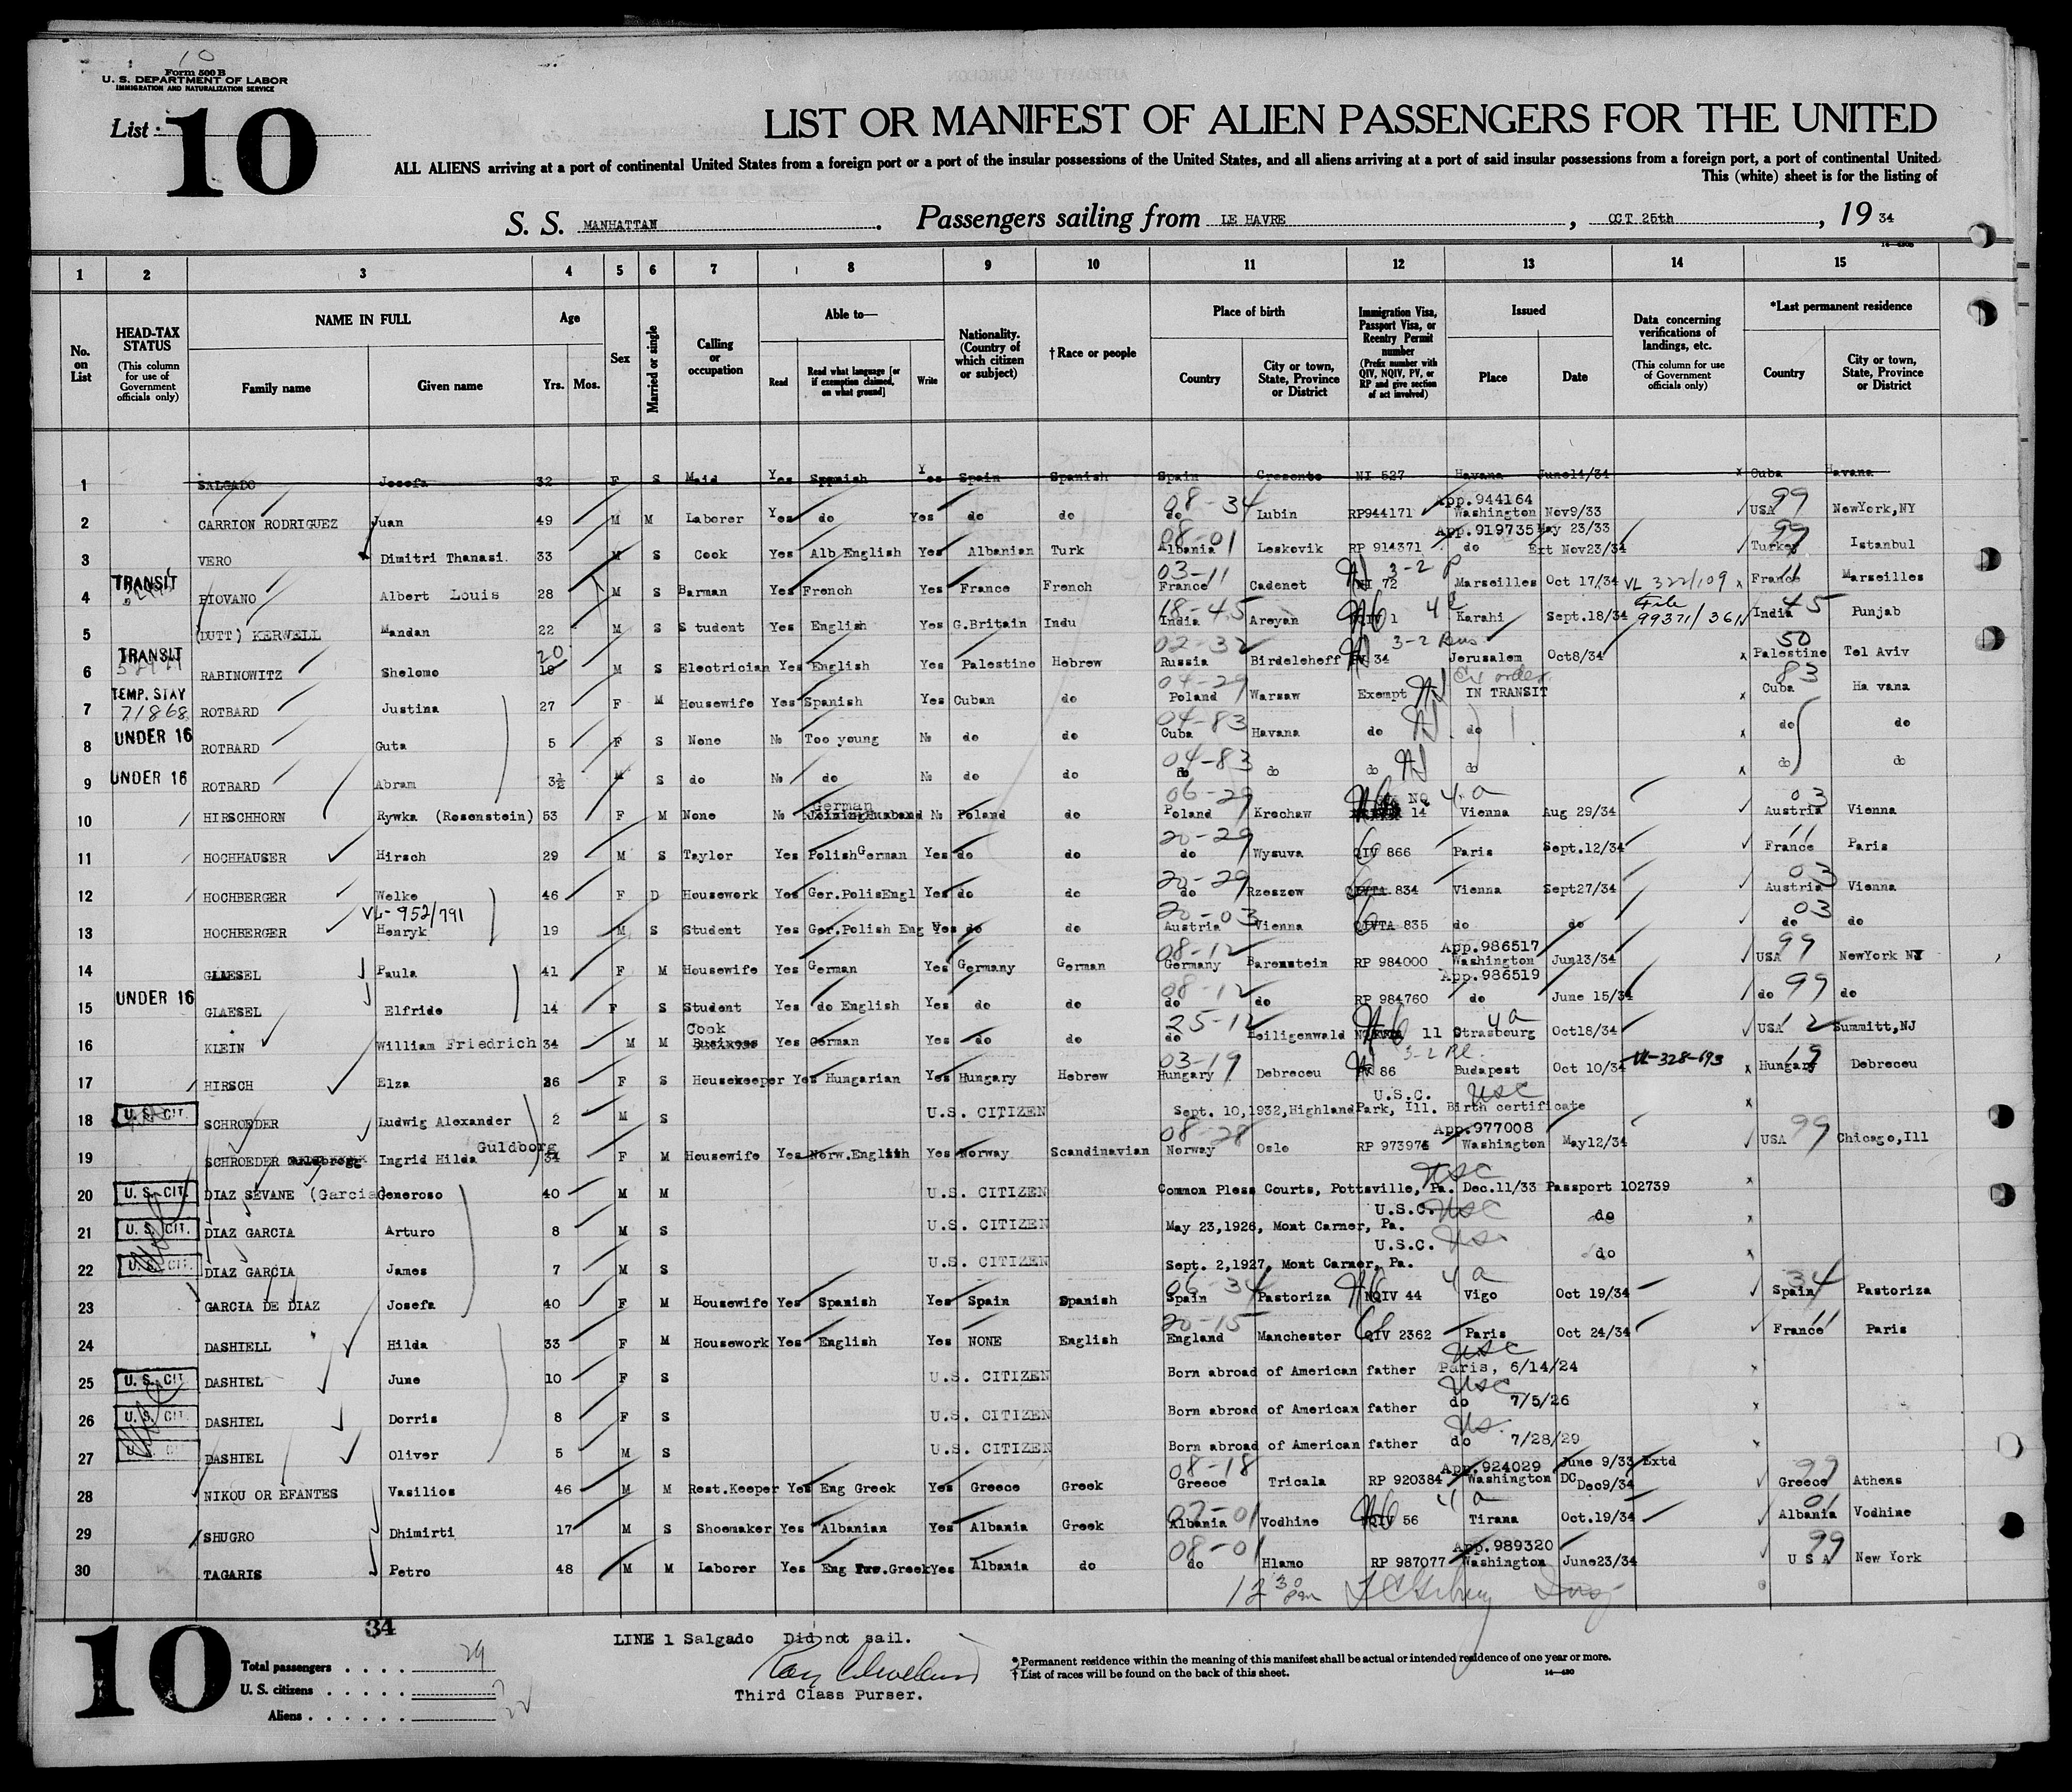 10
Form 500 B
U. S. DEPARTMENT OF LABOR
IMMIGRATION AND NATURALIZATION SERVICE
List 10
LIST OR MANIFEST OF ALIEN PASSENGERS FOR THE UNITED
ALL ALIENS arriving at a port of continental United States from a foreign port or a port of the insular possessions of the United States, and all aliens arriving at a port of said insular possessions from a foreign port, a port of continental United
This (white) sheet is for the listing of
S. S. MANHATTAN. Passengers sailing from LE HAVRE, OCT 25th, 19 34
1 2 3 4 5 6 7 8 9 10 11 12 13 14 15
No. on List
HEAD-TAX STATUS (This column for use of Government officials only)
NAME IN FULL Family name Given name
Age Yrs. Mos.
Sex
Married or single
Calling or occupation
Able to— Read Read what language [or if exemption claimed, on what ground] Write
Nationality. (Country of which citizen or subject)
† Race or people
Place of birth Country City or town, State, Province or District
Immigration Visa, Passport Visa, or Reentry Permit number (Prefix number with QIV, NQIV, PV, or RP and give section of act involved)
Issued Place Date
Data concerning verifications of landings, etc. (This column for use of Government officials only)
*Last permanent residence Country City or town, State, Province or District
1 SALGADO Josefa 32 F S Maid Yes Spanish Yes Spain Spanish Spain Cresente NI 527 Havana June14/34 x Cuba Havana
2 CARRION RODRIGUEZ Juan 49 M M Laborer Yes do Yes do do 08-34 do Lubin RP944171 App.944164 Washington Nov9/33 USA 99 NewYork,NY
3 VERO Dimitri Thanasi. 33 M S Cook Yes Alb English Yes Albanian Turk 08-01 Albania Leskovik RP 914371 App.919735 do May 23/33 Ext Nov23/34 Turkey 99 Istanbul
4 TRANSIT PIOVANO Albert Louis 28 M S Barman Yes French Yes France French 03-11 France Cadenet 72 3-2 Marseilles Oct 17/34 VL 322/109 x France 11 Marseilles
5 (DUTT) KERWELL Mandan 22 M S Student Yes English Yes G.Britain Indu 18-45 India Areyan 1 Karahi Sept.18/34 File 99371/361 India 45 Punjab
6 TRANSIT RABINOWITZ Shelomo 20 18 M S Electrician Yes English Yes Palestine Hebrew 02-32 Russia Birdeleheff PV 34 3-2 Bus Jerusalem Oct8/34 x Palestine 50 Tel Aviv
7 TEMP. STAY 71868 ROTBARD Justina 27 F M Housewife Yes Spanish Yes Cuban do 04-29 Poland Warsaw Exempt IN TRANSIT x Cuba 83 Ha vana
8 UNDER 16 ROTBARD Guta 5 F S None No Too young No do do 04-83 Cuba Havana do do x do do
9 UNDER 16 ROTBARD Abram 3½ M S do No do No do do 04-83 do do do do x do do
10 HIRSCHHORN Rywka (Rosenstein) 53 F M None No German Joining Husband No Poland do 06-29 Poland Krochaw 14 4 a Vienna Aug 29/34 Austria 03 Vienna
11 HOCHHAUSER Hirsch 29 M S Taylor Yes Polish German Yes do do 20-29 do Wysuva QIV 866 Paris Sept.12/34 France 11 Paris
12 HOCHBERGER Welke 46 F D Housework Yes Ger.PolisEngl Yes do do 20-29 do Rzeszow QIVTA 834 Vienna Sept27/34 Austria 03 Vienna
13 HOCHBERGER VL-952/791 Henryk 19 M S Student Yes Ger.Polish Eng Yes do do 20-03 Austria Vienna QIVTA 835 do do do 03 do
14 GLAESEL Paula 41 F M Housewife Yes German Yes Germany German 08-12 Germany Barenstein RP 984000 App.986517 Washington Jun13/34 USA 99 NewYork NY
15 UNDER 16 GLAESEL Elfride 14 F S Student Yes do English Yes do do 08-12 do do RP 984760 App.986519 do June 15/34 do 99 do
16 KLEIN William Friedrich 34 M M Cook Business Yes German Yes do do 25-12 do Heiligenwald 11 4a Strasbourg Oct18/34 USA 12 Summitt,NJ
17 HIRSCH Elza 26 F S Housekeeper Yes Hungarian Yes Hungary Hebrew 03-19 Hungary Debreceu PV 86 3-2 Pl. Budapest Oct 10/34 VL-328-693 x Hungary 19 Debreceu
18 U. S. CIT. SCHROEDER Ludwig Alexander 2 M S U.S. CITIZEN Sept. 10,1932,HighlandPark, Ill. Birth certificate U.S.C. USC x
19 SCHROEDER Ingrid Hilda Guldborg 34 F M Housewife Yes Norw.English Yes Norway Scandinavian 08-28 Norway Oslo RP 973976 App.977008 Washington May12/34 USA 99 Chicago,Ill
20 U. S. CIT. DIAZ SEVANE (Garcia) Generoso 40 M M U.S. CITIZEN Common Pless Courts, Pottsville, Pa. Dec.11/33 Passport 102739 USC x
21 U. S. CIT. DIAZ GARCIA Arturo 8 M S U.S. CITIZEN May 23,1926, Mont Carmer, Pa. U.S.C. USC do x
22 U. S. CIT. DIAZ GARCIA James 7 M S U.S. CITIZEN Sept. 2,1927, Mont Carmer, Pa. U.S.C. do x
23 GARCIA DE DIAZ Josefa 40 F M Housewife Yes Spanish Yes Spain Spanish 06-34 Spain Pastoriza NQIV 44 4 a Vigo Oct 19/34 Spain 34 Pastoriza
24 DASHIELL Hilda 33 F M Housework Yes English Yes NONE English 20-15 England Manchester QIV 2362 Paris Oct 24/34 France 11 Paris
25 U. S. CIT. DASHIEL June 10 F S U.S. CITIZEN Born abroad of American father USC Paris, 6/14/24 x
26 U. S. CIT. DASHIEL Dorris 8 F S U.S. CITIZEN Born abroad of American father USC do 7/5/26 x
27 U. S. CIT DASHIEL Oliver 5 M S U.S. CITIZEN Born abroad of American father do 7/28/29 x
28 NIKOU OR EFANTES Vasilios 46 M M Rest.Keeper Yes Eng Greek Yes Greece Greek 08-18 Greece Tricala RP 920384 App.924029 Washington DC June 9/33 Extd Dec9/34 Greece 99 Athens
29 SHUGRO Dhimirti 17 M S Shoemaker Yes Albanian Yes Albania Greek 07-01 Albania Vodhine NQIV 56 4 a Tirana Oct.19/34 Albania 01 Vodhine
30 TAGARIS Petro 48 M M Laborer Yes Eng Greek Yes Albania do 08-01 do Hlamo RP 987077 App.989320 Washington June23/34 U S A 99 New York
12 30 pm
34
10
LINE 1 Salgado Did not sail.
Total passengers 29
U. S. citizens 7
Aliens 22
Third Class Purser.
* Permanent residence within the meaning of this manifest shall be actual or intended residence of one year or more.
† List of races will be found on the back of this sheet.
14—430